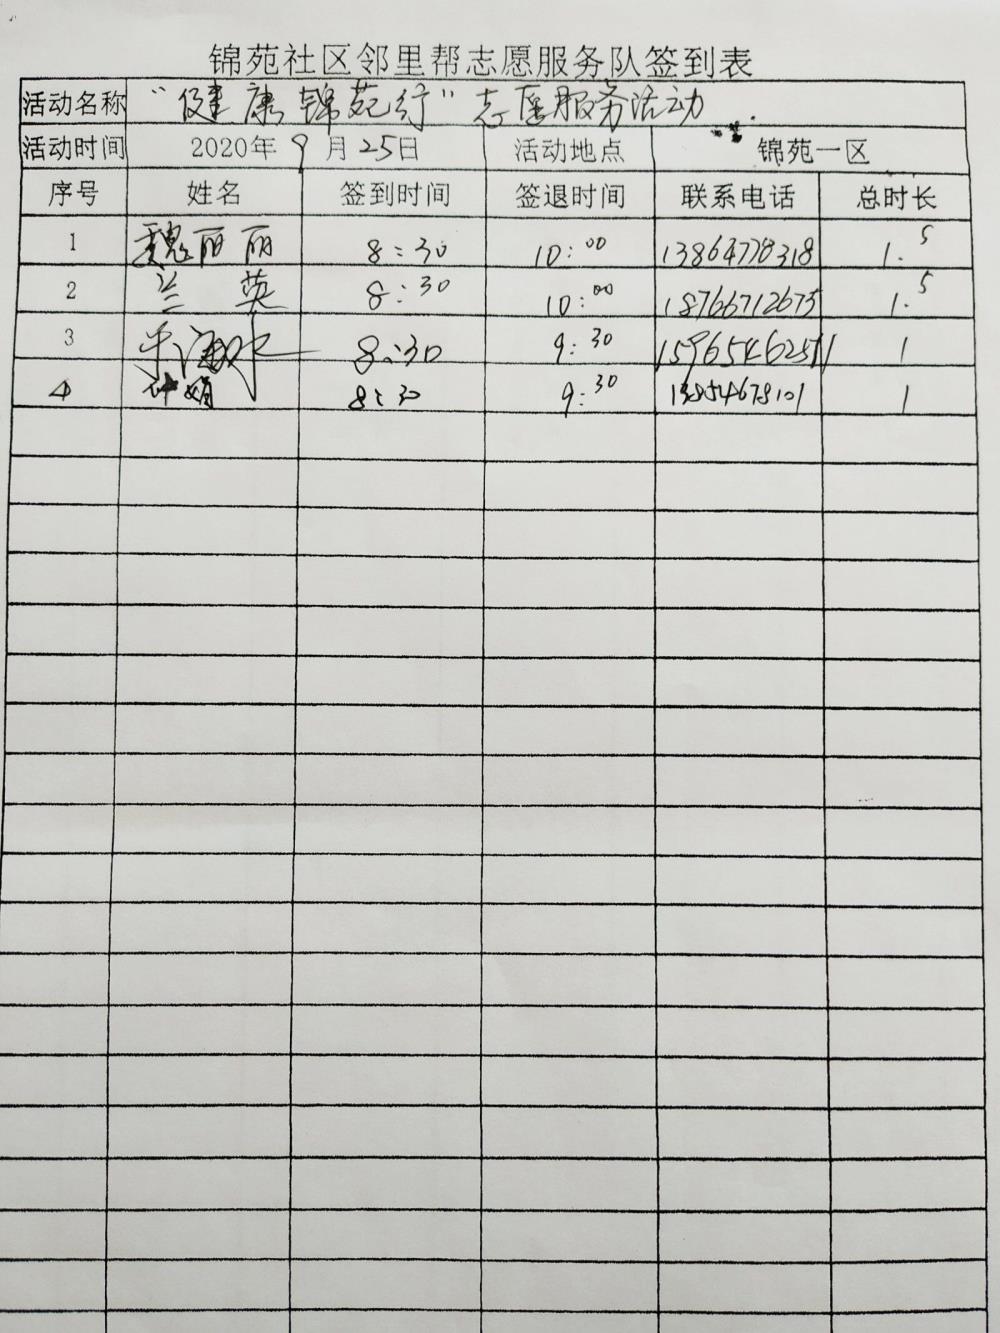 锦苑社区邻里帮志愿服务队签到表
活动名称 “健康锦苑行”志愿服务活动.
活动时间 2020年9月25日 活动地点 锦苑一区
序号 姓名 签到时间 签退时间 联系电话 总时长
1 魏丽丽 8:30 10:00 13864778318 1.5
2 兰英 8:30 10:00 18766712675 1.5
3 8:30 9:30 1
4 钟娟 8:30 9:30 13854678101 1